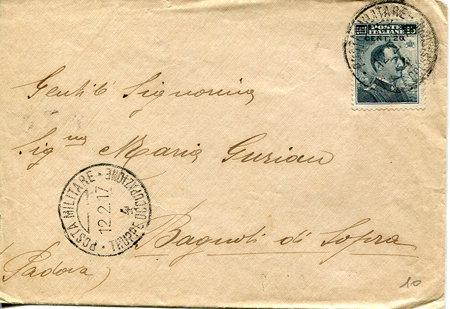 POSTA MILITARE
POSTE ITALIANE
15 15
CENT. 20
Gentile Signorina
Sig.na Maria Gurian
POSTA MILITARE · TRUPPE OCCUPAZIONE
12.2.17
Bagnoli di Sopra
Padova
10